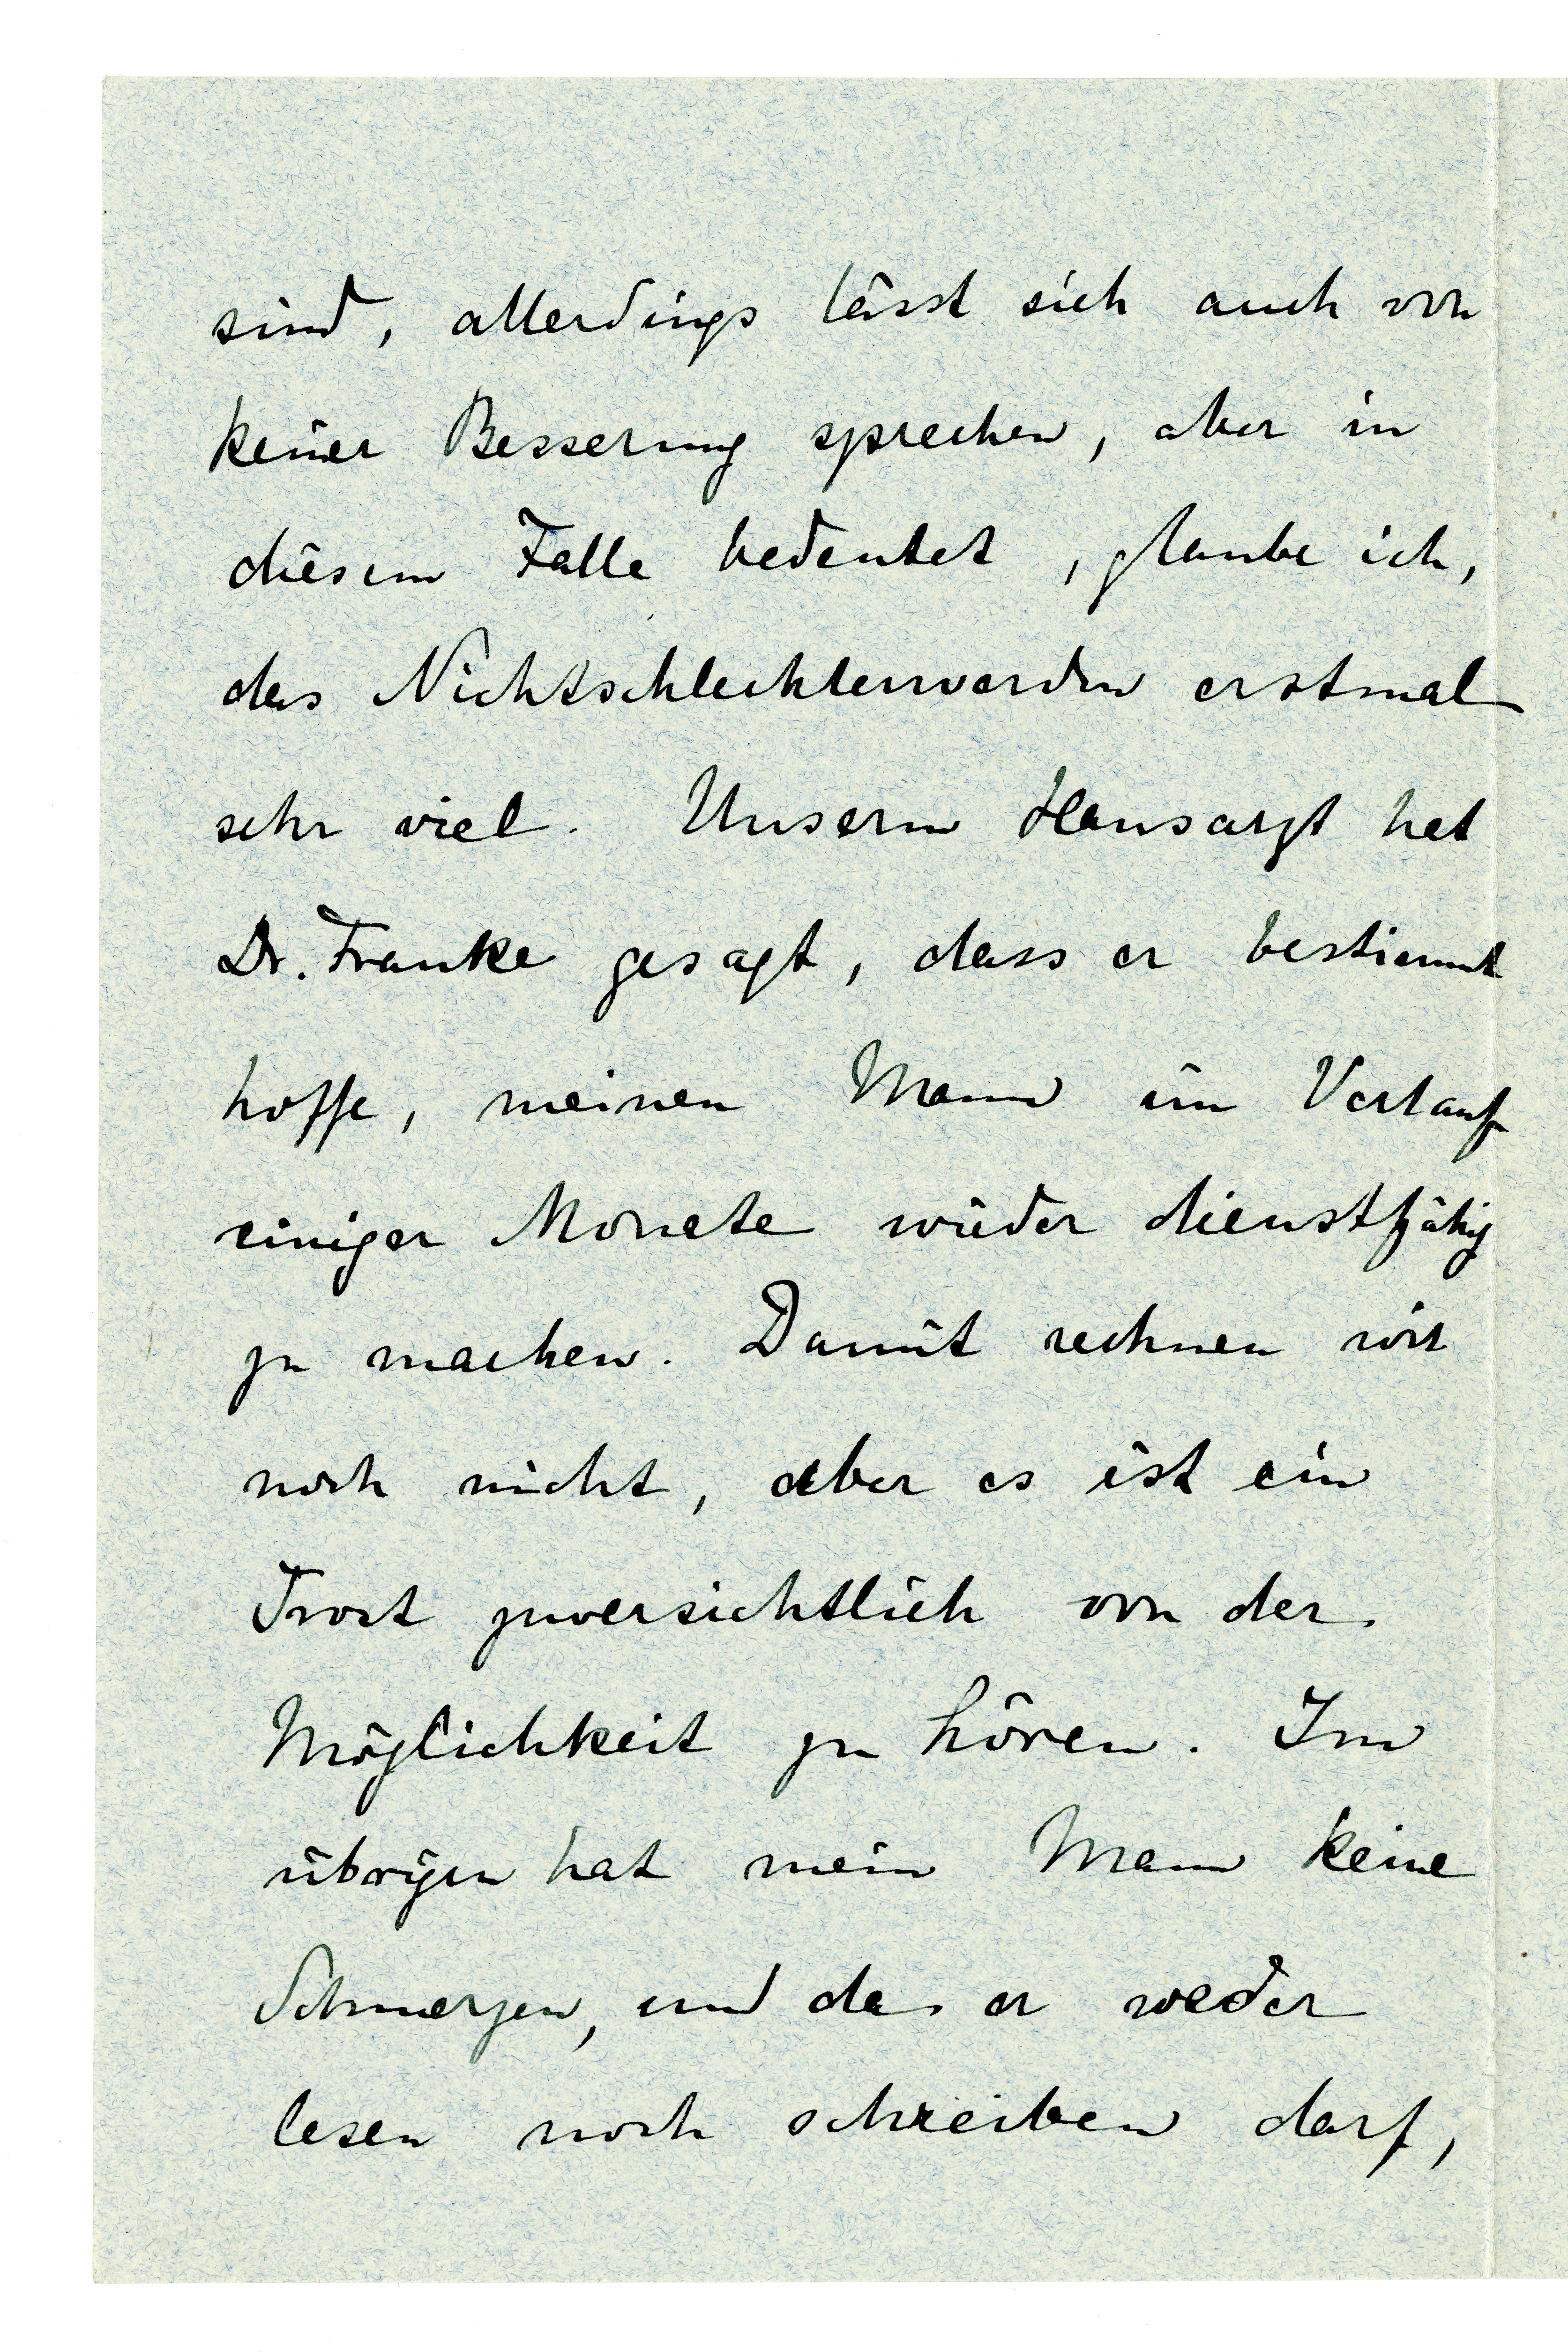 sind, allerdings lässt sich auch von
keiner Besserung sprechen, aber in
diesem Falle bedeutet, glaube ich,
das Nichtschlechterwerden erstmal
sehr viel. Unserm Hausarzt hat
Dr. Franke gesagt, dass er bestimmt
hoffe, meinen Mann im Verlauf
einiger Monate wieder dienstfähig
zu machen. Damit rechnen wir
noch nicht, aber es ist ein
Trost zuversichtlich von der
Möglichkeit zu hören. Im
übrigen hat mein Mann keine
Schmerzen, und da er weder
lesen noch schreiben darf,